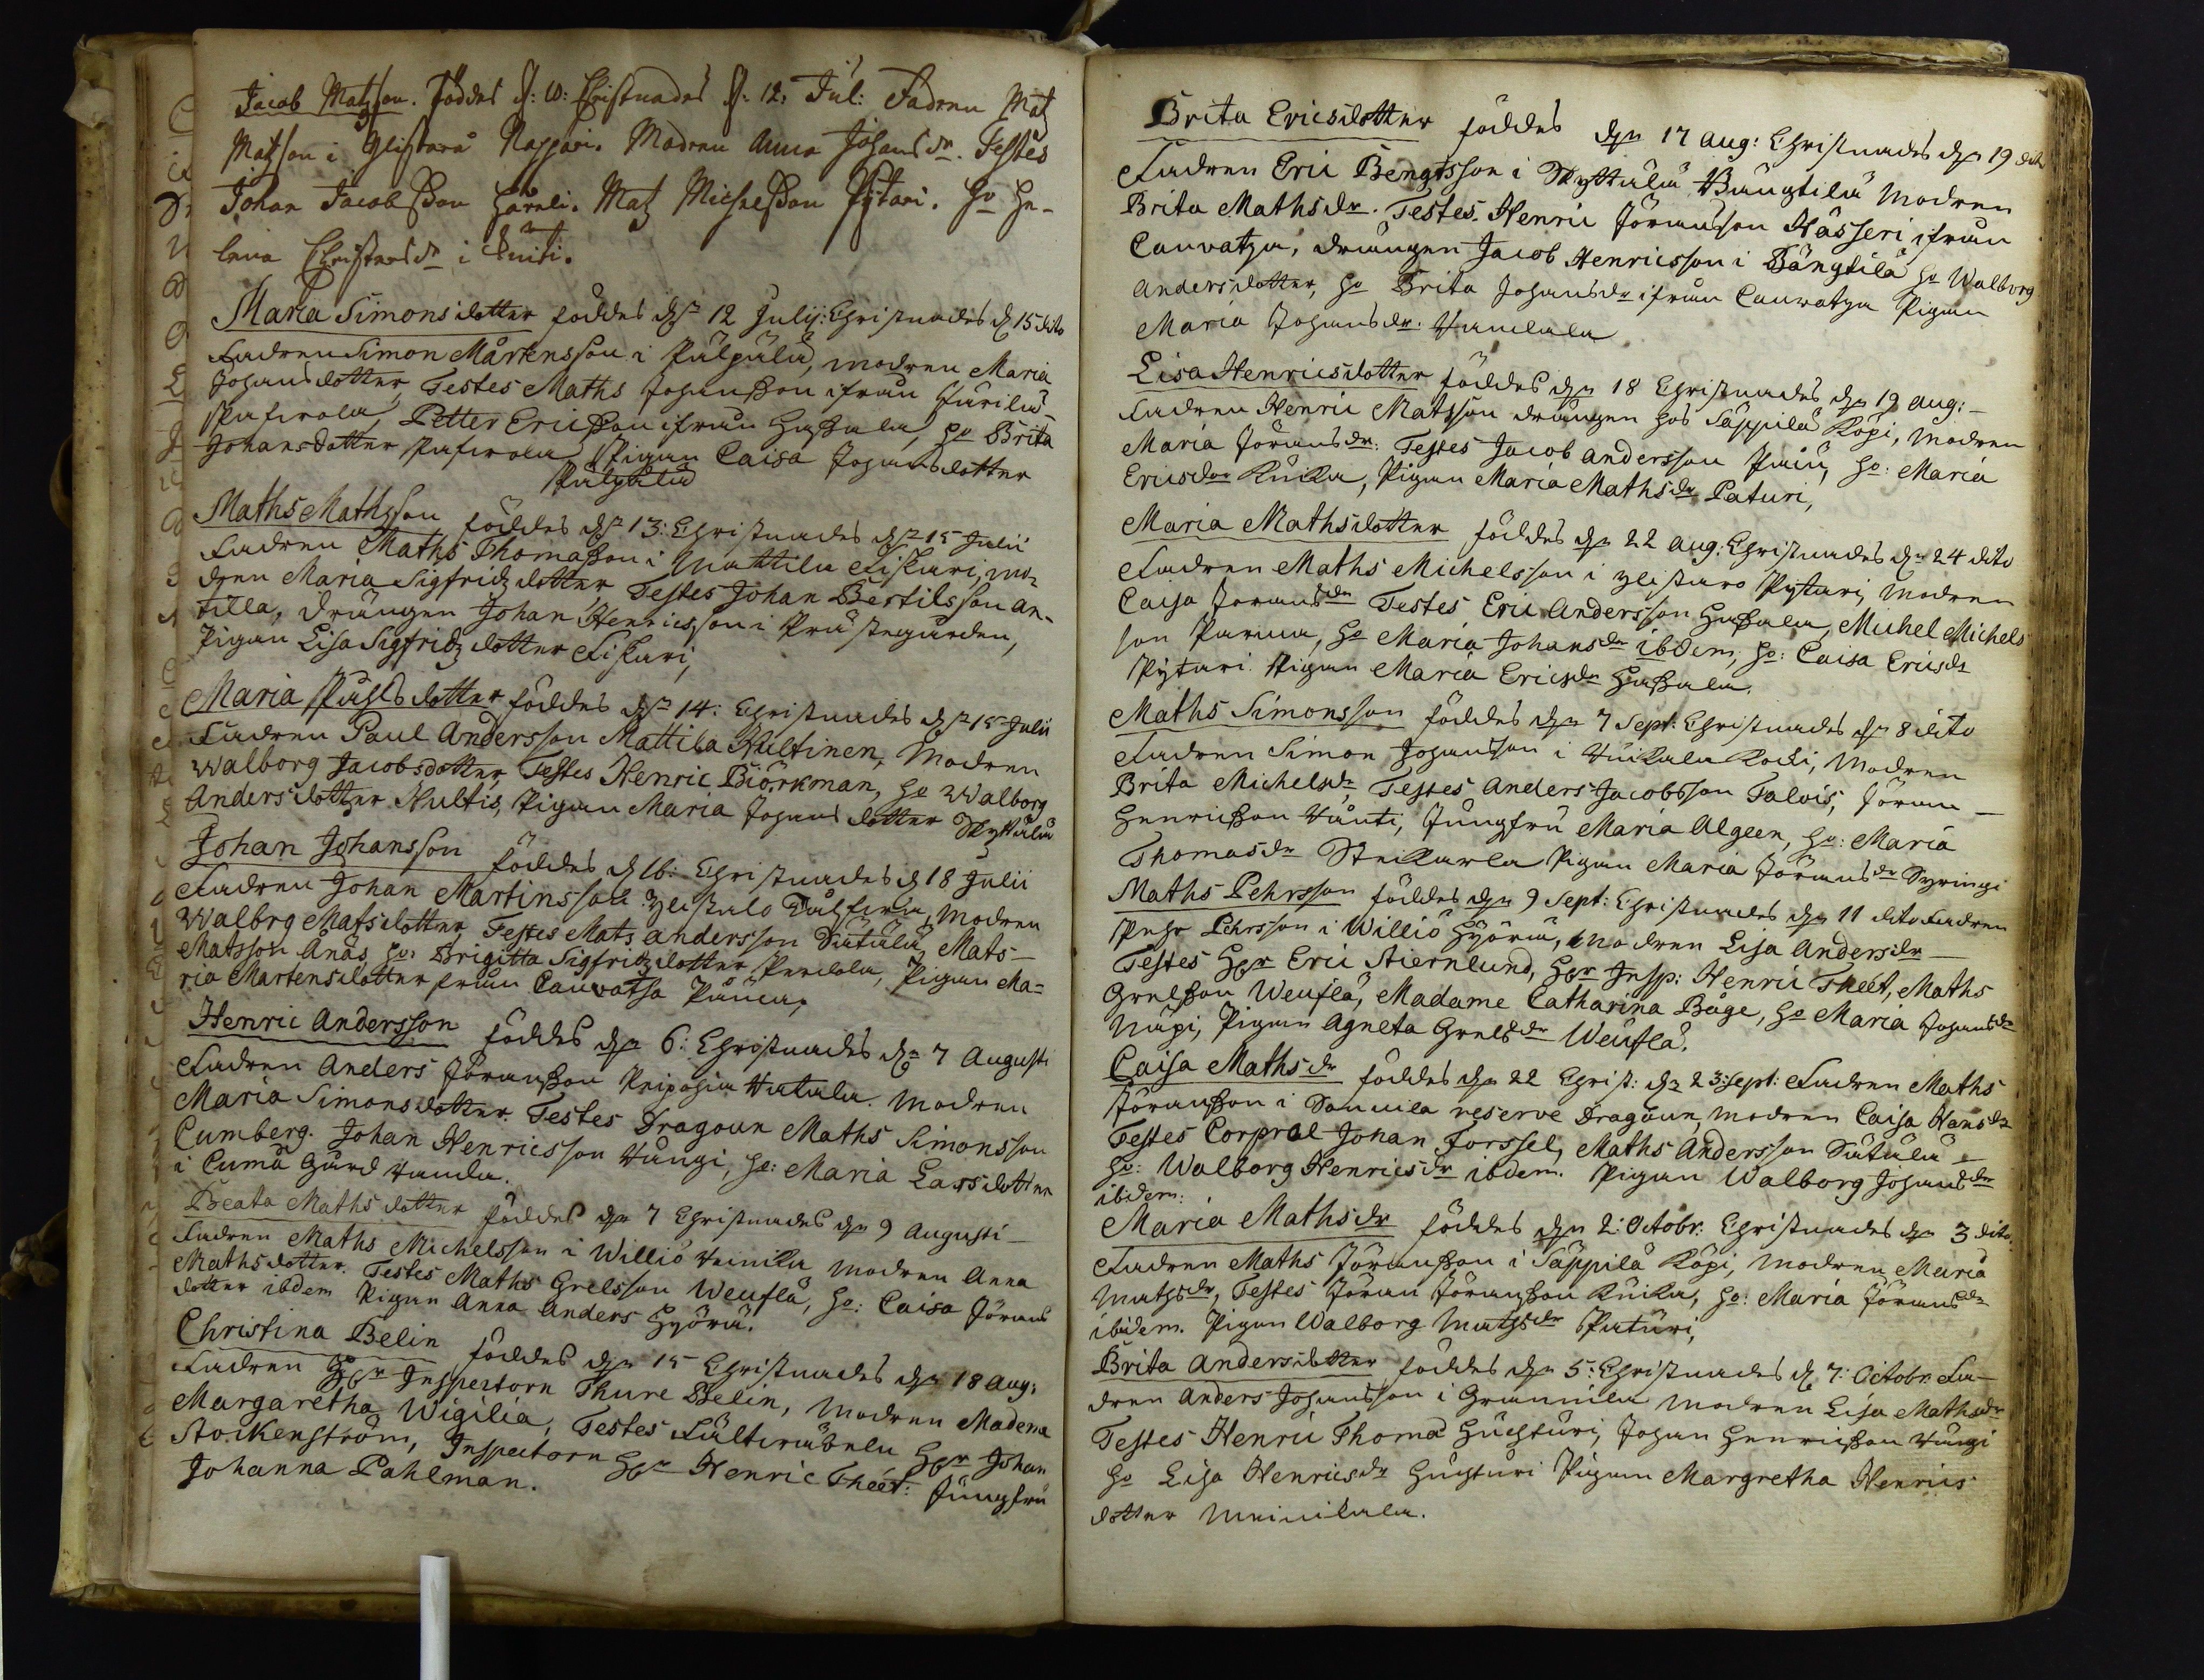 Jacob Matzson. Föddes d: 10: Christnades d: 12: Jul: Fadren Matz
Matzson i Ylistarå Nappari. Modren Anna Johansdr. Testes
Johan Jacobsson Harneli. Matz Michelsson Pytari. ho He-
lena Christersdr i Knuti.
Maria Simonsdotter föddes dn 12 Julij: Christnades d 15 dito
Fadren Simon Mårtensson i Pulpula, modren Maria
Johansdotter, Testes Maths Johansson ifrån
Pafwola, Petter Ericsson ifrån Hassala, ho Brita
Johansdotter Pafwola Pigan Caisa Johansdotter
Pulpula
Maths Mathsson föddes dn 13: Christnades dn 15 Julii
Fadren Maths Thomasson i Mattila Fiskari, mo-
dren Maria Sigfridzdotter Testes Johan Bertilsson An-
tilla, Drängen Johan Henricsson i Prästegården,
Pigan Lisa Sigfridzdotter Fiskari,
Maria Påhlsdotter föddes dn 14: Christnades dn 15 Julii
Fadren Paul Andersson Mattila Hultinen, Modren
Walborg Jacobsdotter, Testes Henric Biörkman, ho Walborg
Andersdotter Hultis, Pigan Maria Johansdotter Skyttälä
Johan Johansson föddes d 16: Christnades d 18 Julii
Fadren Johan Martinsson Ylistalo, Modren
Walbrg Matsdotter Testes Mats Andersson Sätälä, Mats-
Matsson Anäs, ho: Brigitta Sigfridzdotter Perdola, Pigan Ma=
ria Martensdotter från Cauvatsa
Henric Andersson föddes dn 6: Christnades dn 7 Augusti
Fadren Anders Jöransson Knipohia Hatala. Modren
Maria Simonsdotter. Testes Dragoun Maths Simonsson
Cumberg. Johan Henricsson Hångi, ho: Maria Larsdotter
i Cumå Gård
Beata Mathsdotter föddes dn 7 Christnades dn 9 Augusti-
Fadren Maths Michelsson i Williö Heinila Modren Anna
Mathsdotter. Testes Maths Grelsson Weuflå, ho: Caisa Jörans
dotter ibdem Pigan Anna Anders Hyörä.
Christina Belin föddes dn 15 Christnades dn 18 Aug:
Fadren Hr Inspectorn Thure Belin, Modren Madema
Margaretha Wigilia, Testes Fältwäbeln Hr Johan
Stockenström, Inspectorn Hr Henric Théet: Jungfru
Johanna Pahlman.
Brita Ericsdotter föddes dn 17 Aug: Christnades dn 19 dito
Fadren Eric Bengtsson i Skyttälä Bängtilä Modren
Brita Mathsdr. Testes. Henric Jöransson Hässeri ifrån
Cauvatza, drängen Jacob Henricsson i Bängtilä ho Walborg
Andersdotter, ho Brita Johansdr ifrån Cauwatza Pigan
Maria Johansdr.
Lisa Henricsdotter föddes dn 18 Christnades dn 19 Aug:-
Fadren Henric Matsson drängen hos Säppilä Köpi, Modren
Maria Jöransdr: Testes Jacob Andersson, ho: Maria
Ericsdr Kuika, Pigan Maria Mathsdr Paturi,
Maria Mathsdotter föddes dn 22 Aug: Christnades dn 24 dito
Fadren Maths Michelsson i Ylistaro Pytari, Modren
Caisa Joransdr Testes Eric Andersson Hassala, Michel Michels
son, ho Maria Johansdr ibdem, ho: Caisa Ericsdr
Pytari Pigan Maria Ericsdr Hassala.
Maths Simonsson föddes dn 7 Sept: Christnades dn 8 dito
Fadren Simon Johansson i Kuikala Kocki, Modren
Brita Michelsdr, Testes Anders Jacobsson Talvis, Jöran-
Henricsson Knuti, Jungfru Maria Algeen, ho: Maria
Thomasdr Steikarla Pigan Maria Jöransdr Syringi
Maths Pehrsson föddes dn 9 Sept: Christnades dn 11 dito Fadren
Pehr Pehrsson i Williö Hyörä, Modren Lisa Andersdr-
Testes Hr Eric Stiernlund, Hr Insp: Henric Theét, Maths
Grelsson Weuflå, Madame Catharina Båge, ho Maria Johansdr
Näpi, Pigan Agneta Grelsdr Weuflå.
Caisa Mathsdr föddes dn 22 Christ: dn 23: Sept: Fadren Maths
Jöransson i Sonnila reserve Dragoun, Modren Caisa Hansdr
Testes Corpral Johan Forssel, Maths Andersson Sätälä -
ho: Walborg Henricsdr ibdem. Pigan Walborg Johansdr
ibdem:
Maria Mathsdr föddes dn 2: Octobr: Christnades dn 3 dito.
Fadren Maths Jöransson i Säppilä Köpi, Modren Maria
Mathsdr, Testes Jöran Jöransson Kuika, ho: Maria Jöransdr
ibidem. Pigan Walborg Mathsdr Paturi,
Brita Andersdotter föddes dn 5: Christnades d 7: Octobr. Fa-
dren Anders Johansson i Grannila Modren Lisa Mathsdr
Testes Henric Thoma Huchturi, Johan Henricsson Hångi
ho Lisa Henricsdr Huchturi Pigan Margretha Henrics
dotter Meinikala.